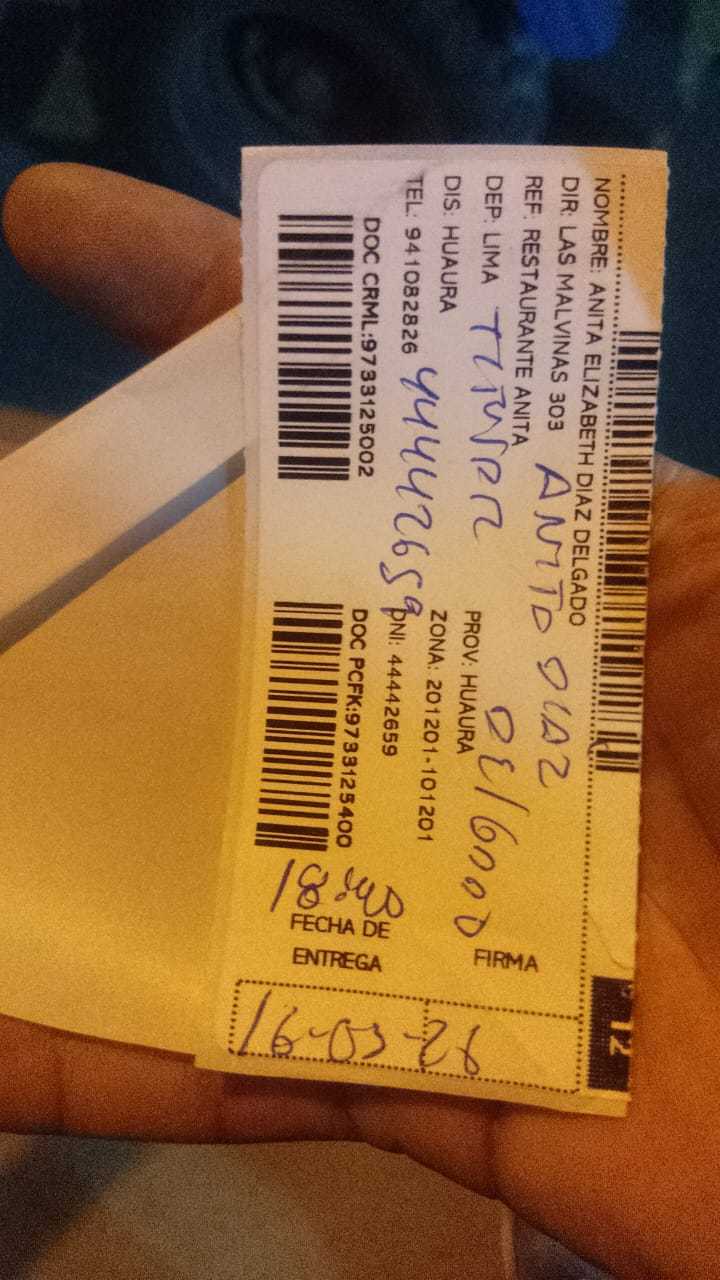 NOMBRE: ANITA ELIZABETH DIAZ DELGADO
DIR: LAS MALVINAS 303
REF: RESTAURANTE ANITA
DEP: LIMA PROV: HUAURA
DIS: HUAURA ZONA: 201201-101201
TEL: 941082826 DNI: 44442659
DOC CRML:9733125002 DOC PCFK:9733125400
44442659
FIRMA
FECHA DE
ENTREGA
12